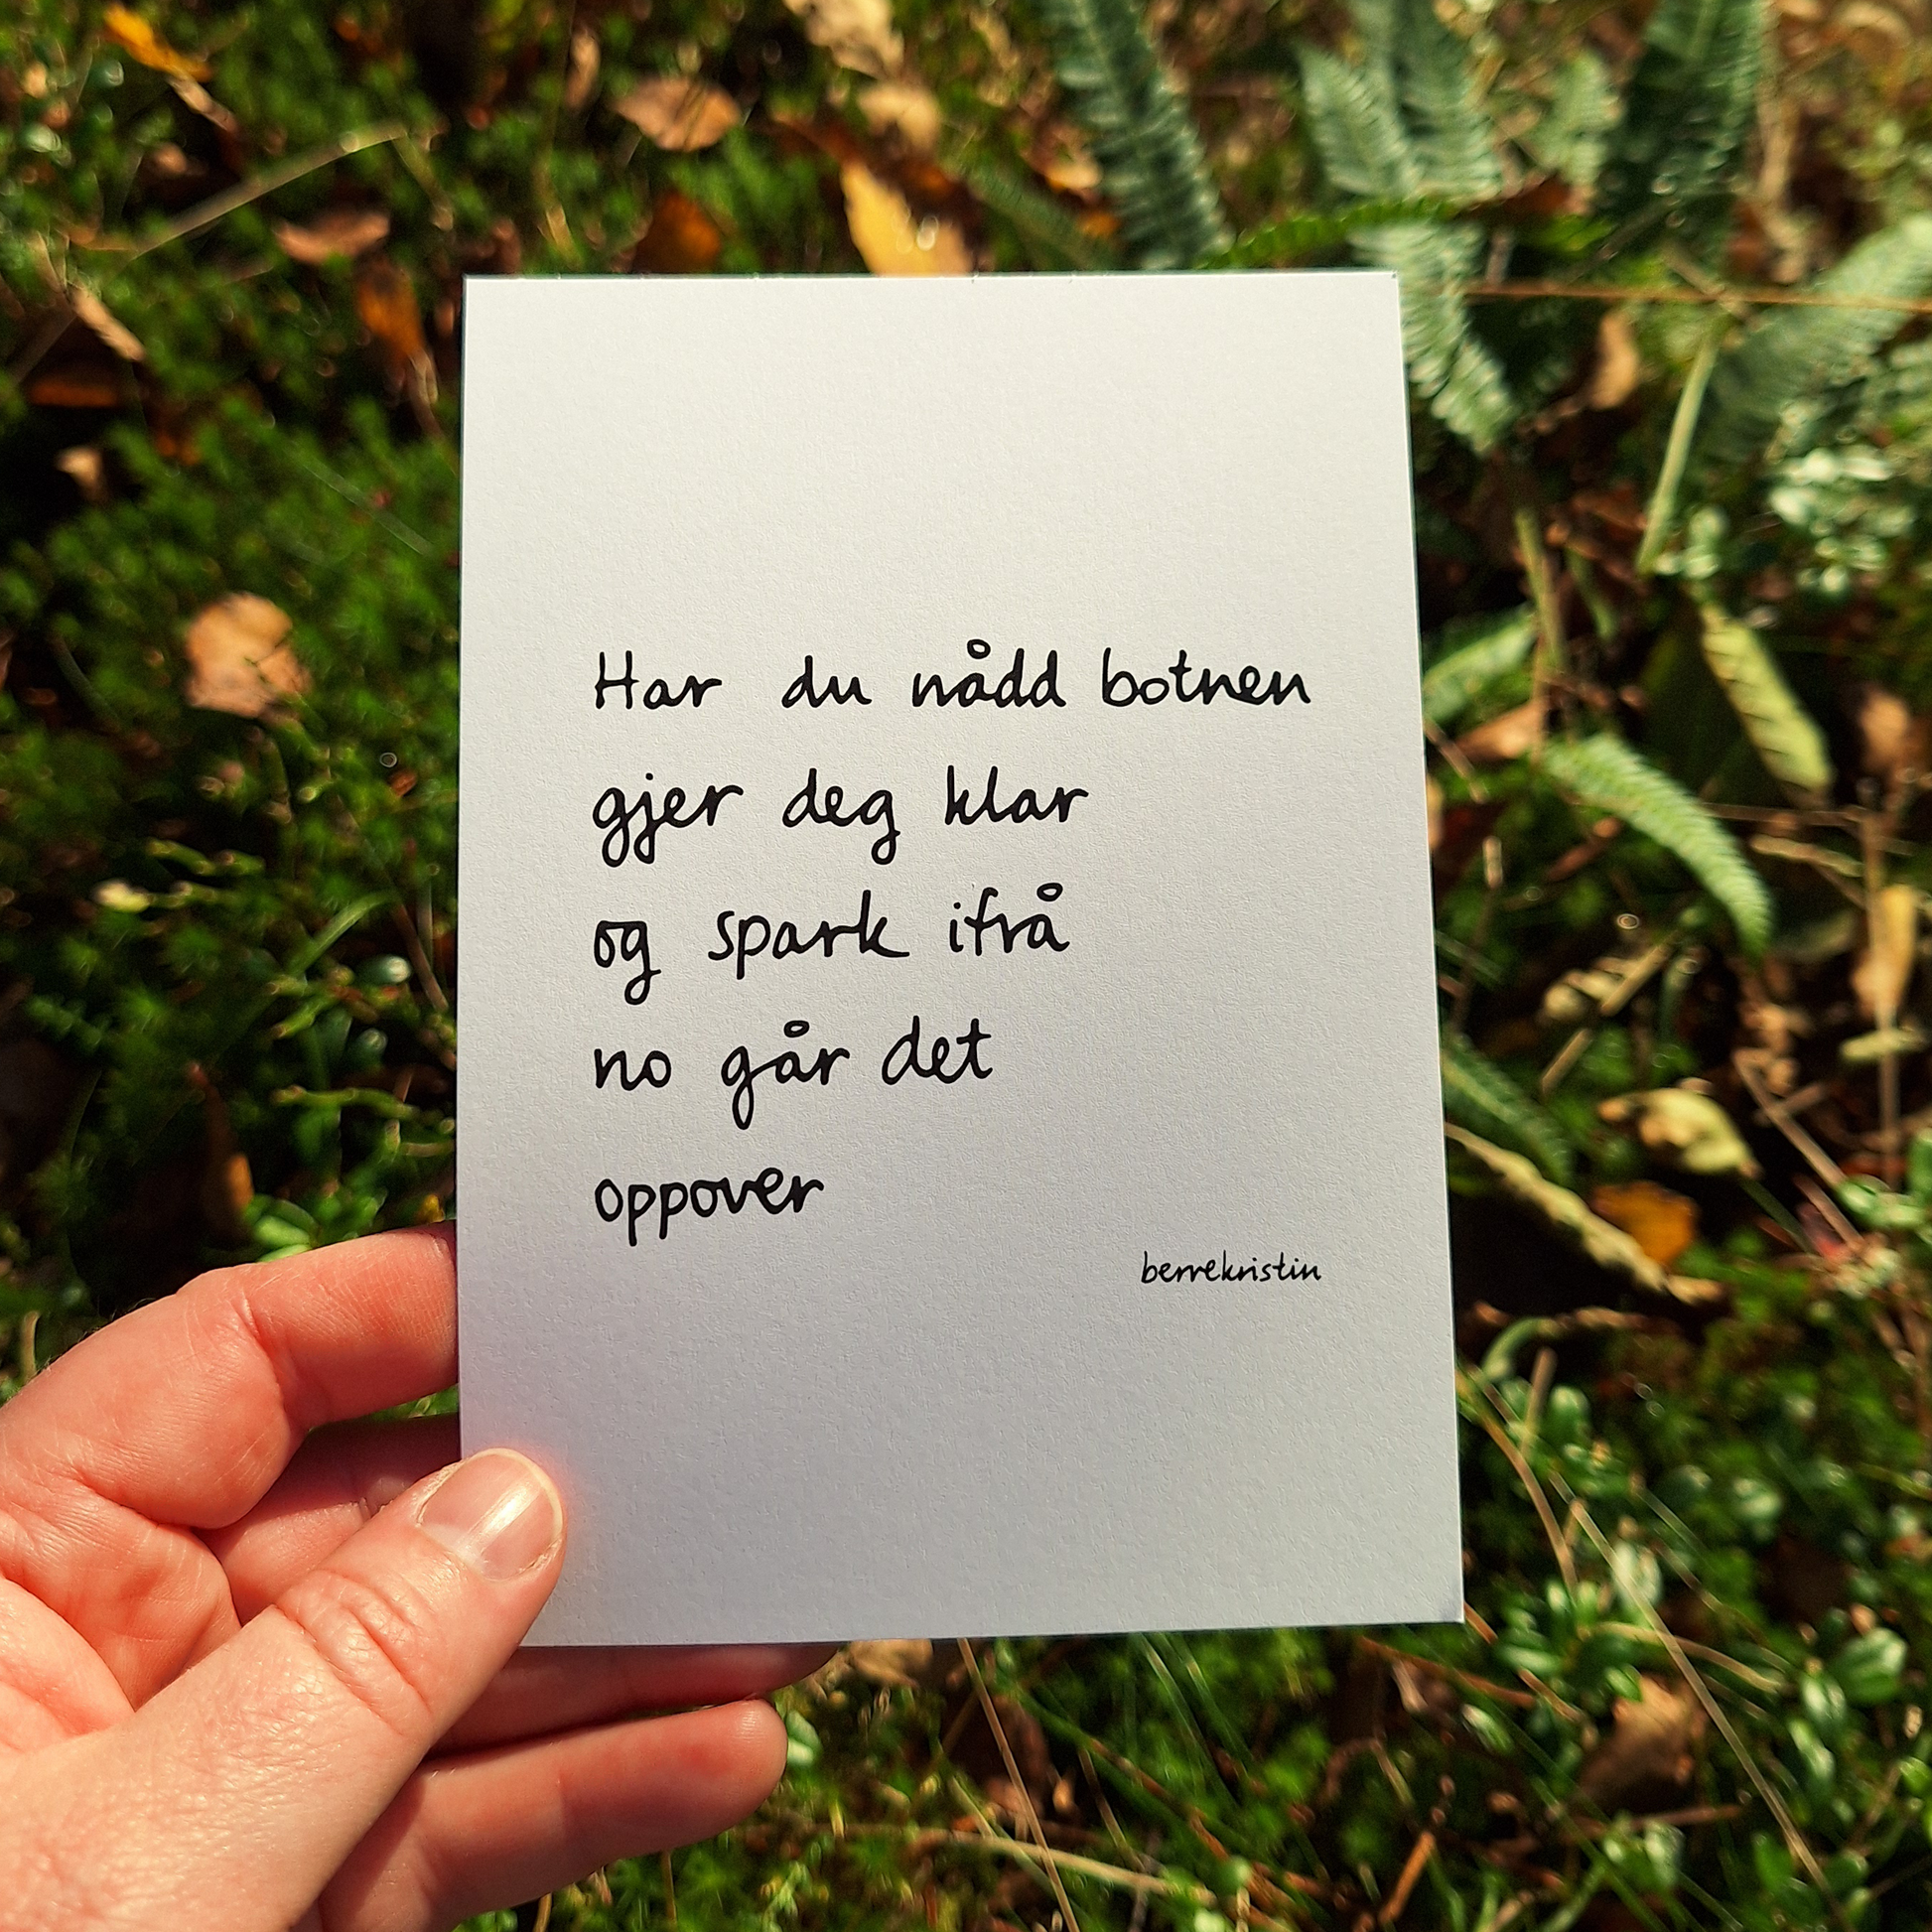 Har du nådd botnen
gjer deg klar
og spark ifrå
no går det
oppover
berrekristin